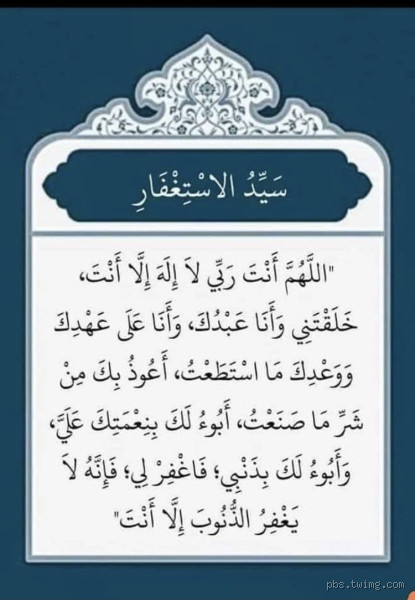 سَيِّدُ الاسْتِغْفَارِ
"اللَّهُمَّ أَنْتَ رَبِّي لاَ إِلَهَ إِلَّا أَنْتَ،
خَلَقْتَنِي وَأَنَا عَبْدُكَ، وَأَنَا عَلَى عَهْدِكَ
وَوَعْدِكَ مَا اسْتَطَعْتُ، أَعُوذُ بِكَ مِنْ
شَرِّ مَا صَنَعْتُ، أَبُوءُ لَكَ بِنِعْمَتِكَ عَلَيَّ،
وَأَبُوءُ لَكَ بِذَنْبِي؛ فَاغْفِرْ لِي؛ فَإِنَّهُ لاَ
يَغْفِرُ الذُّنُوبَ إِلَّا أَنْتَ"
pbs.twimg.com